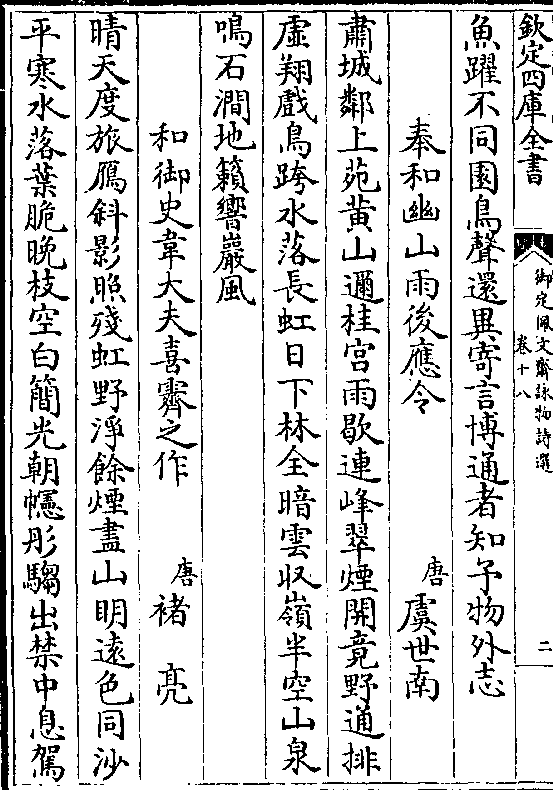 欽定四庫全書
御定佩文齋詠物詩選
卷十八
二
魚躍不同園鳥聲還異寄言博通者知予物外志
奉和幽山雨後應令
唐虞世南
肅城鄰上苑黄山邇桂宮雨歇連峰翠煙開竟野通排
虛翔戲鳥跨水落長虹日下林全暗雲収嶺半空山泉
鳴石澗地籟響巖風
和御史韋大夫喜霽之作
唐褚亮
晴天度旅鴈斜影照殘虹野淨餘煙盡山明遠色同沙
平寒水落葉脆晚枝空白簡光朝幰彤騶出禁中息駕